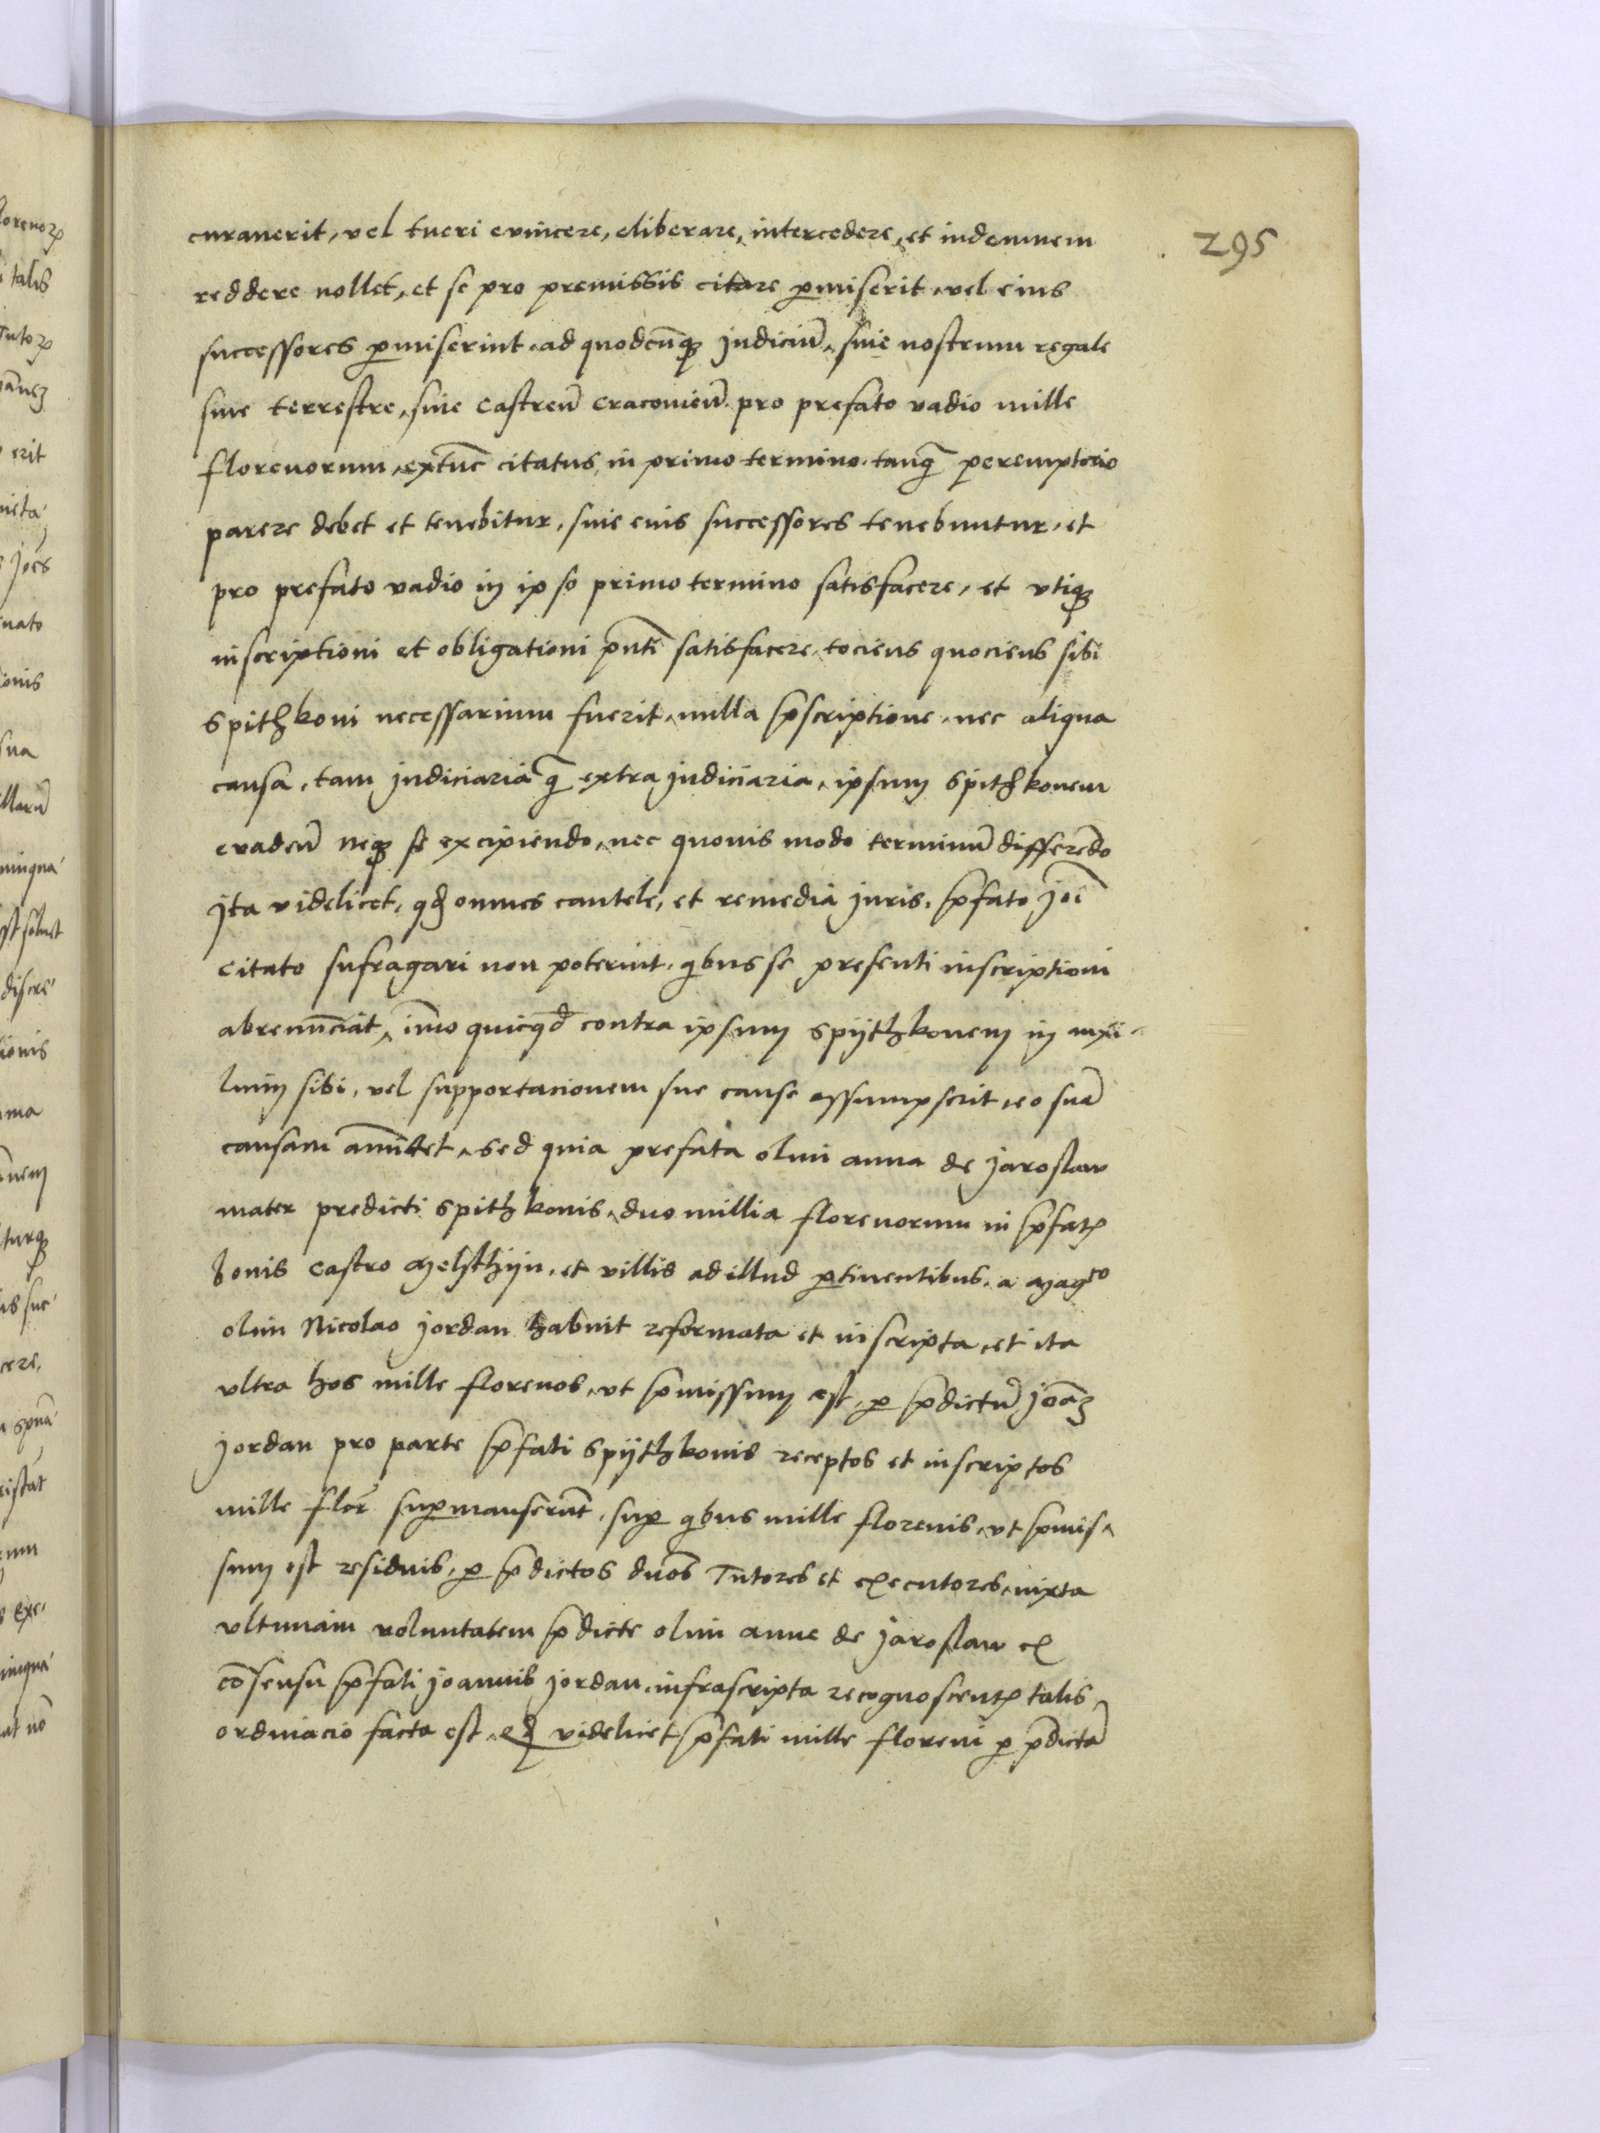 295
curauerit, vel tueri evincere, eliberare, intercedere, et indemnem
reddere nollet, et se pro premissis citare p̱miserit, vel eius
successores p̱miserint, ad quodcunq̃ Judiciũ, siue nostrum regale
siue terrestre, siue Castreñ Cracovieñ. pro prefato vadio mille
florenorum, extũc citatus, in primo termino, tanq̃ peremptorio
parere debet et tenebitur, siue eius successores tenebuntur, et
pro prefato vadio in ipso primo termino satisfacere, et vtiq̃
inscriptioni et obligationi p̃nti satisfacere, tociens quociens sibi
Spithkoni necessarium fuerit, nulla p̃scriptione, nec aliqua
causa, tam judiciaria q̃ extra judiciaria, ipsum Spithkonem
evadeñ neq̃ se excipiendo, nec quouis modo terminũ differẽdo
Ita videlicet, qđ omnes cautele, et remedia juris, p̃fato Joẽ
citato sufragari non poterint, qibus se presenti inscriptioni
abrenũciat, im̃o quicqđ contra ipsum Spijthkonem in auxi-
lium sibi, vel supportacionem sue cause assumpserit, eo suã
causam am̃ittet, Sed quia prefata olim Anna de Jaroslaw
mater predicti Spithkonis, duo millia florenorum in p̃fatꝭ
bonis Castro Melsthijn, et villis ad illud p̱tinentibus, a Magco
olim Nicolao Jordan habuit reformata et inscripta, et ita
vltra hos mille florenos, vt p̃missum est, p̱ p̃dictũ Joãꝫ
Jordan pro parte p̃fati Spijthkonis receptos et inscriptos
mille flor̃ sup̱manserũt, sup̱ qibus mille florenis, vt p̃mis-
sum est residuis, p̱ p̃dictos duos Tutores et executores, iuxta
vltimam voluntatem p̃dicte olim Anne de Jaroslaw ex
cõsensu p̃fati Joannis Jordan, infrascripta recognoscentꝭ talis
ordinacio facta est, qđ videlicet p̃fati mille floreni p̱ p̃dictã